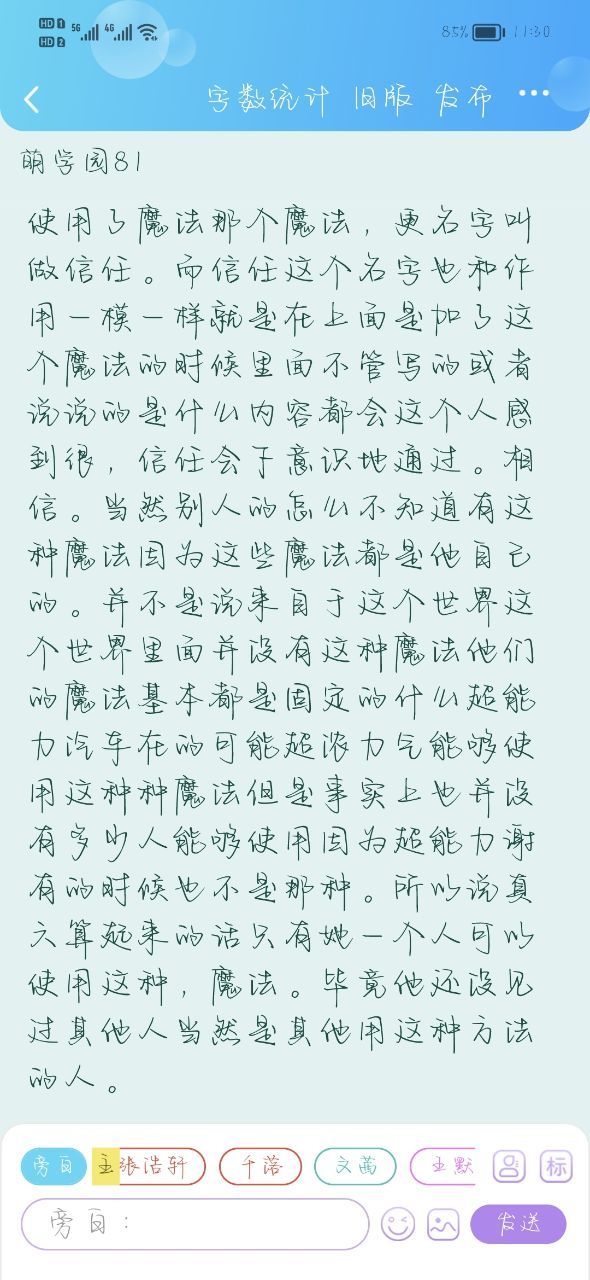 HD 1 5G 4G 85% 11:30
HD 2
字数统计 旧版 发布
萌学园81
使用了魔法那个魔法，更名字叫
做信任。而信任这个名字也和作
用一模一样就是在上面是加了这
个魔法的时候里面不管写的或者
说说的是什么内容都会这个人感
到很，信任会于意识地通过。相
信。当然别人的怎么不知道有这
种魔法因为这些魔法都是他自己
的。并不是说来自于这个世界这
个世界里面并没有这种魔法他们
的魔法基本都是固定的什么超能
力汽车在的可能超浓力气能够使
用这种种魔法但是事实上也并没
有多少人能够使用因为超能力谢
有的时候也不是那种。所以说真
六算起来的话只有她一个人可以
使用这种，魔法。毕竟他还没见
过其他人当然是其他用这种方法
的人。
旁白 主 张浩轩 千落 文茜 王默 标
旁白： 发送